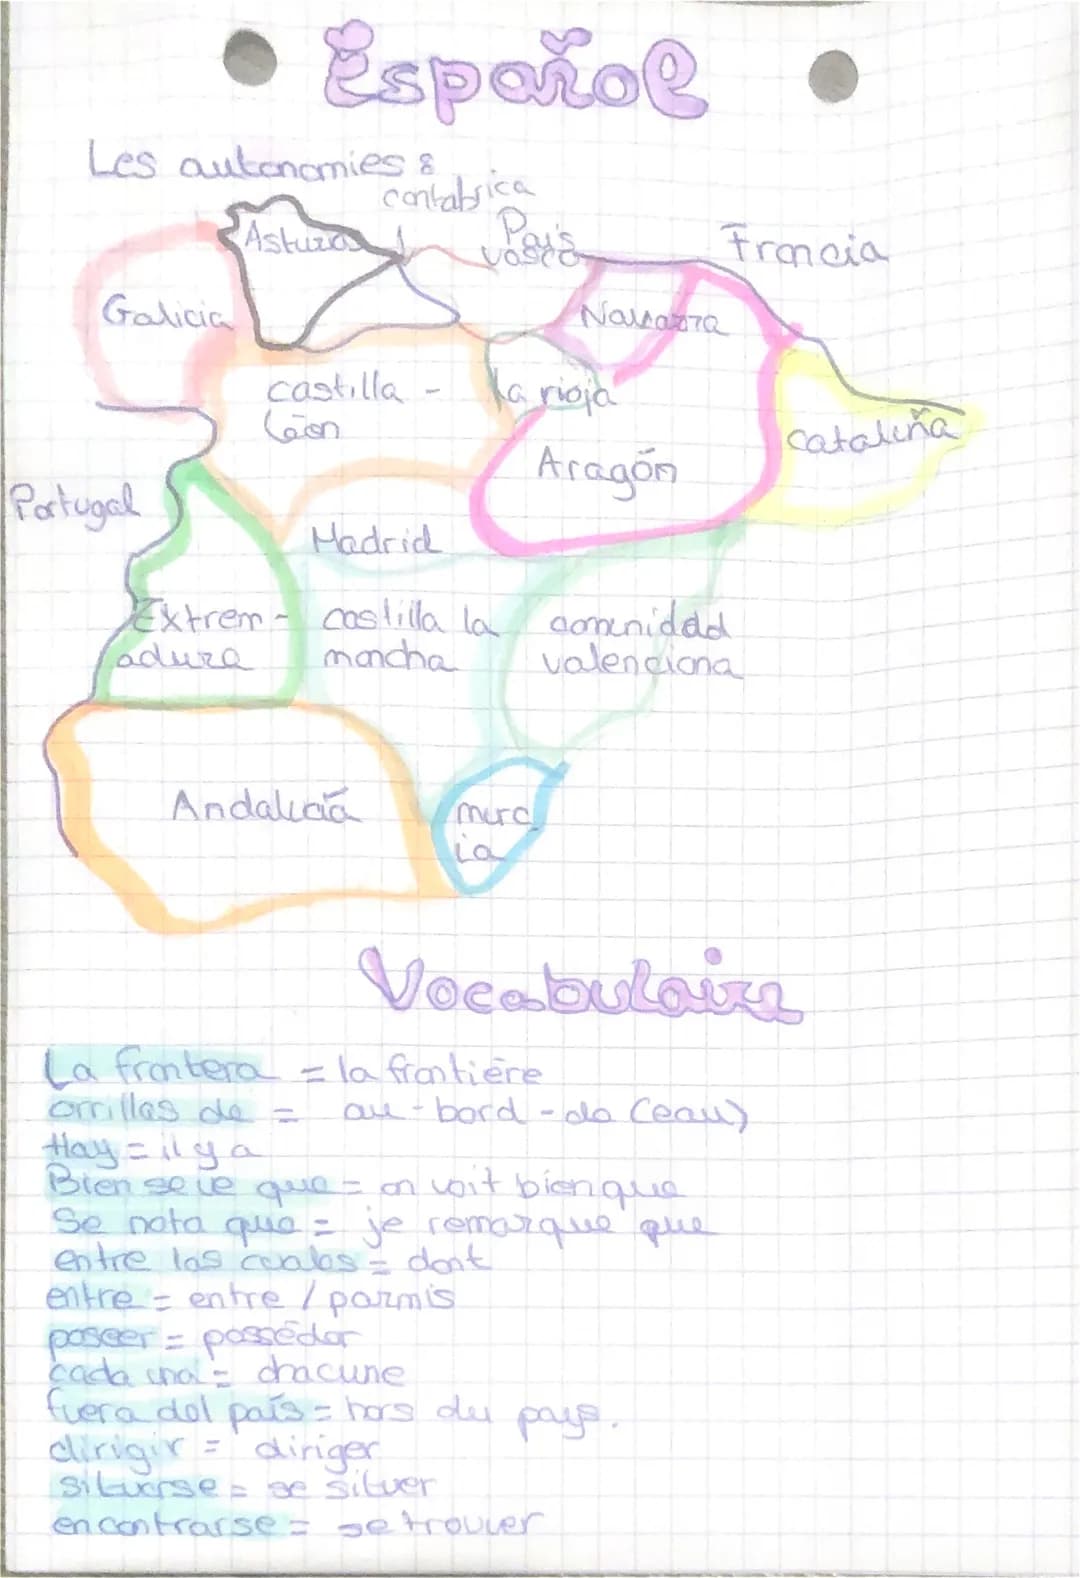 Español
Les autonomies :
contabrica
Asturias
País
vasco
Francia
Galicia
Navarra
castilla -
Léon
la rioja
cataluña
Aragón
Portugal
Madrid
Extrem-
adura
castilla la
mancha
comunidad
valenciana
Andalucia
murc
ia
Vocabulaire
La frontera = la frontière
orrillas de = au-bord-de (eau)
Hay = il y a
Bien se ve que = on voit bien que
Se nota que = je remarque que
entre las cuales = dont
entre = entre / parmis
poseer = posséder
cada una = chacune
fuera del país = hors du pays.
dirigir = diriger
situarse = se situer
encontrarse = se trouver